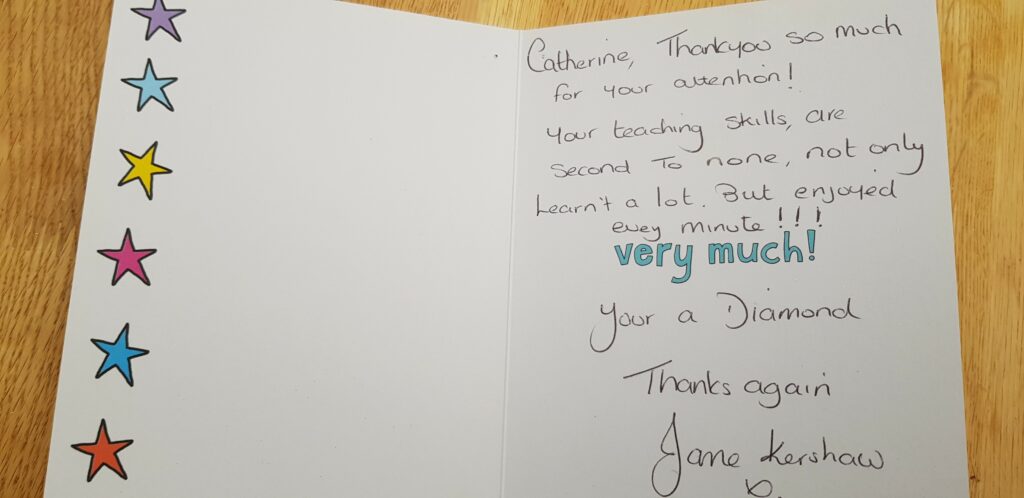 Catherine, Thankyou so much
for your attention!
Your teaching skills, are
second To none, not only
Learn't a lot. But enjoyed
evey minute !!!
very much!
Your a Diamond
Thanks again
Jane Kershaw